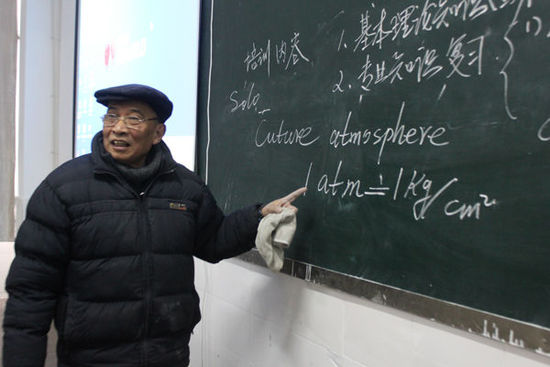 培训内容
1. 基本理论知识
2. 专业知识复习
Solo
Cuture atmosphere
1 atm ≐ 1 Kg/cm²